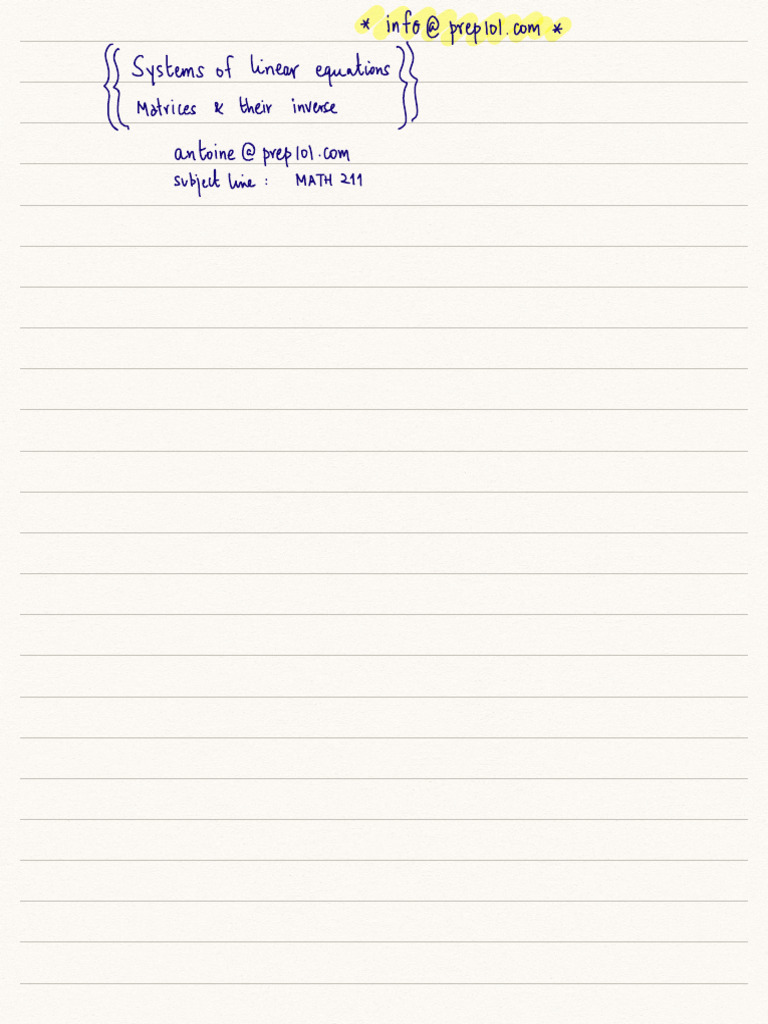 * info@prep101.com *
Systems of linear equations
Matrices & their inverse
antoine@prep101.com
subject line : MATH 211